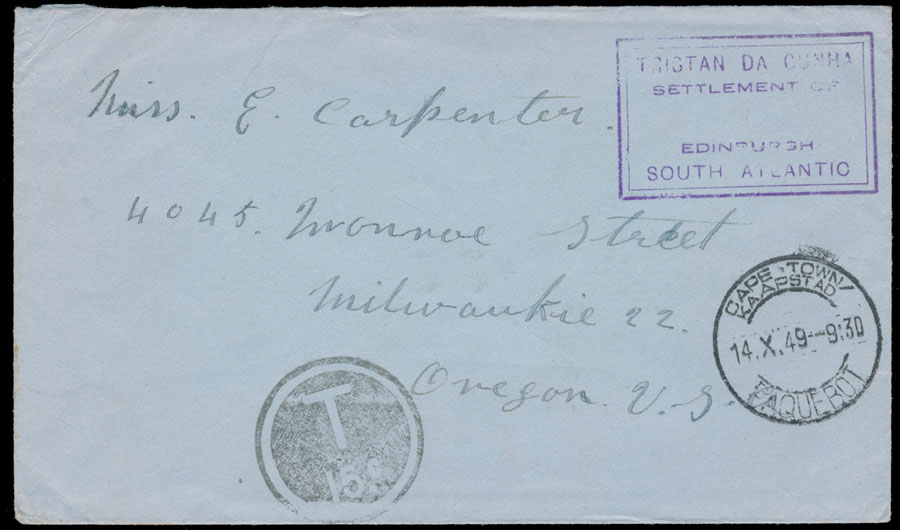 TRISTAN DA CUNHA
SETTLEMENT OF
EDINBURGH
SOUTH ATLANTIC
Miss. E. Carpenter.
4045. Monroe Street
Milwaukie 22.
Oregon. U.S.
CAPE TOWN/
KAAPSTAD
14.X.49--9:30
PAQUEBOT
T
15c